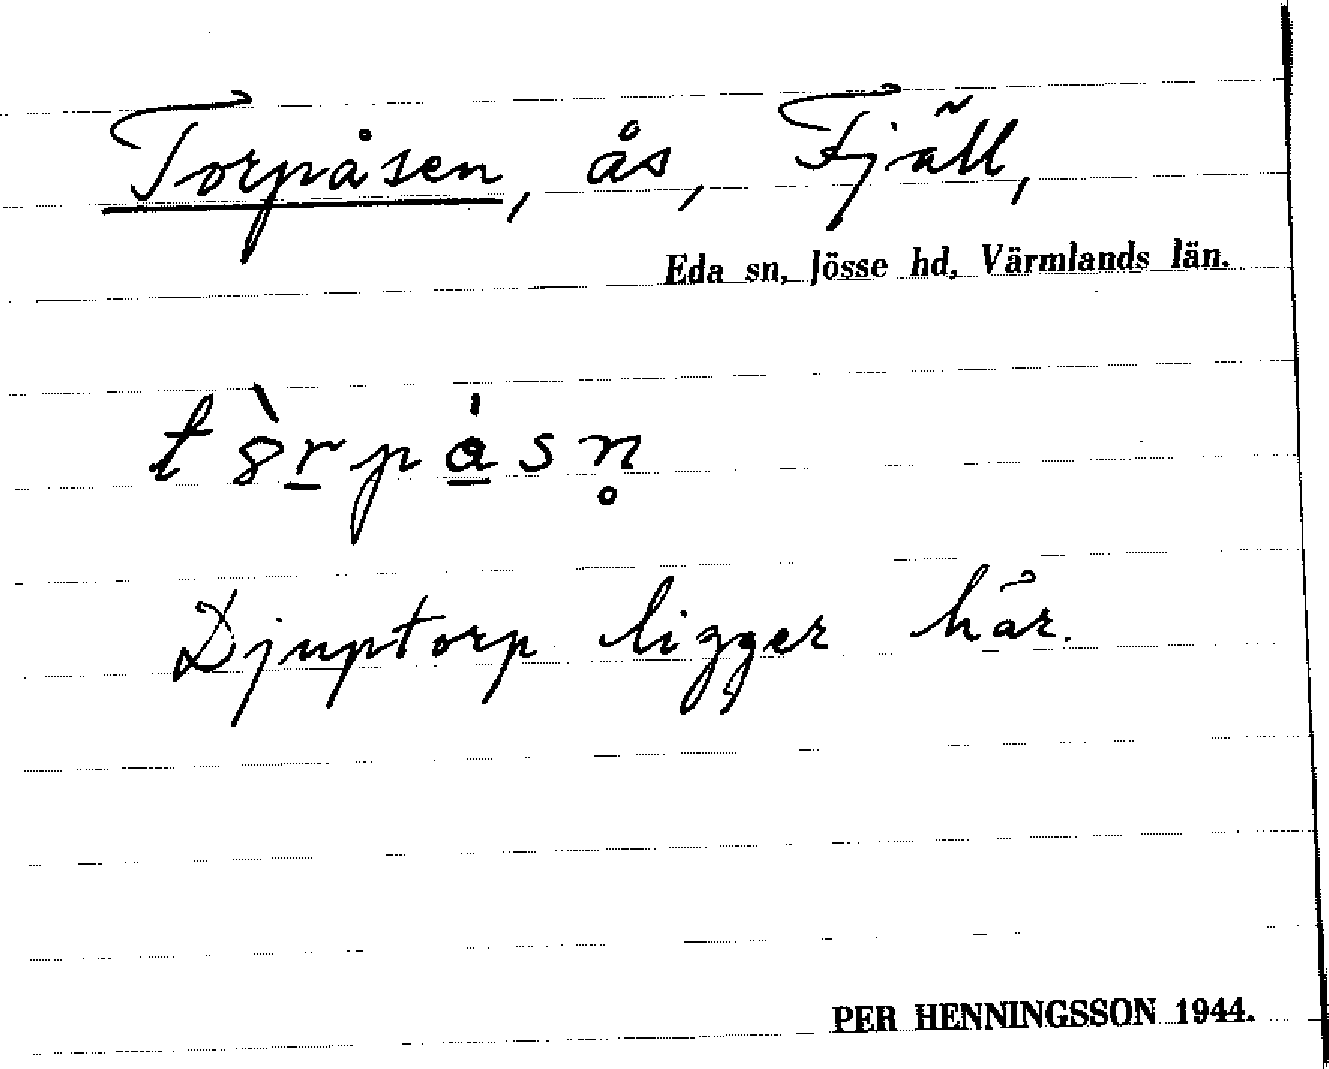 Torpåsen, ås, Fjäll,
Eda sn, Jösse hd, Värmlands län.
t8̀r̲pa̲̍sn̥
Djuptorp ligger här.
PER HENNINGSSON 1944.